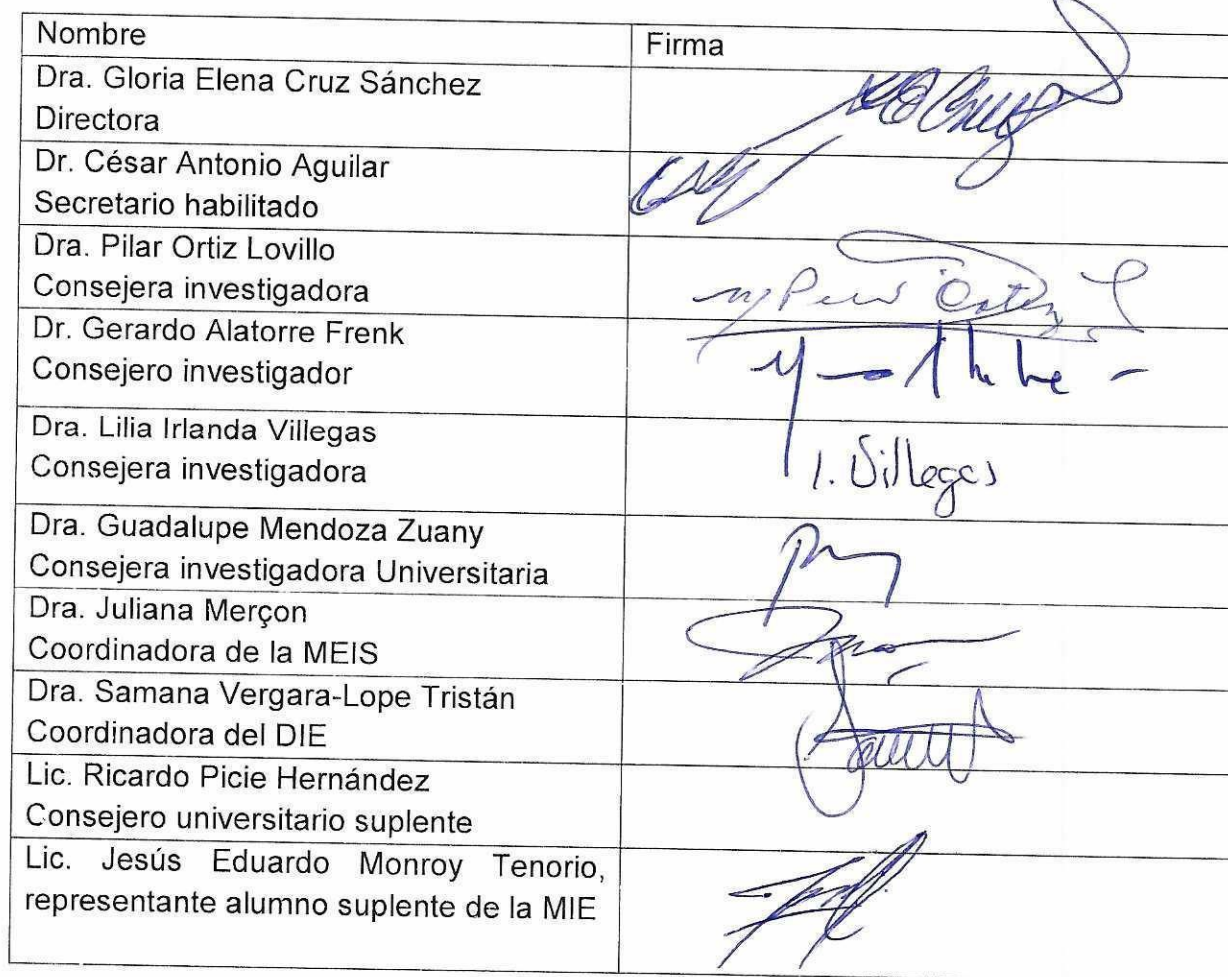 Nombre
Firma
Dra. Gloria Elena Cruz Sánchez
Directora
Dr. César Antonio Aguilar
Secretario habilitado
Dra. Pilar Ortiz Lovillo
Consejera investigadora
Dr. Gerardo Alatorre Frenk
Consejero investigador
Dra. Lilia Irlanda Villegas
Consejera investigadora
I. Villegas
Dra. Guadalupe Mendoza Zuany
Consejera investigadora Universitaria
Dra. Juliana Merçon
Coordinadora de la MEIS
Dra. Samana Vergara-Lope Tristán
Coordinadora del DIE
Lic. Ricardo Picie Hernández
Consejero universitario suplente
Lic. Jesús Eduardo Monroy Tenorio,
representante alumno suplente de la MIE